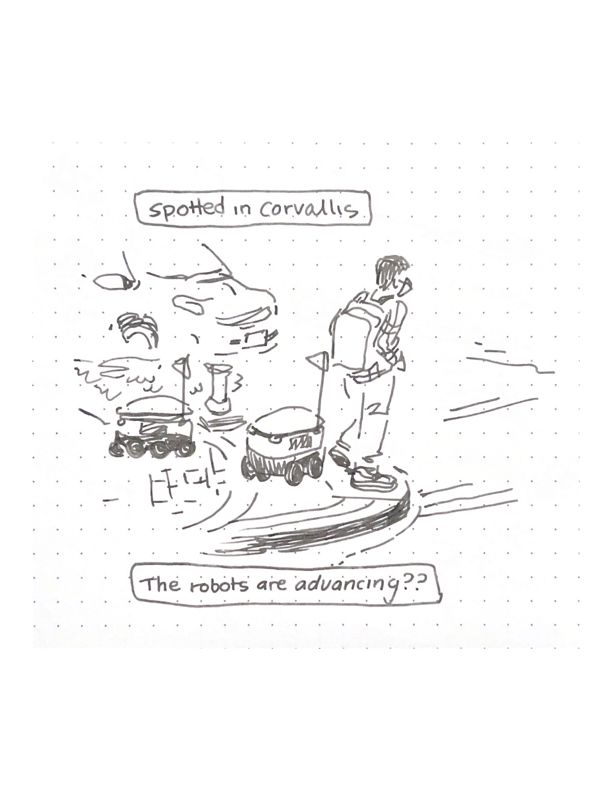 Spotted in Corvallis
The robots are advancing??